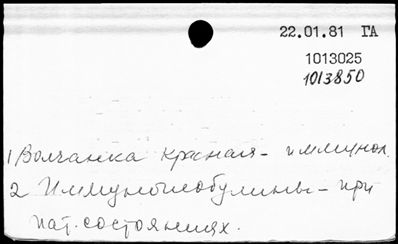 22.01.81 ГА
1013025
1013850
1 Волчанка красная - иммунол.
2 Иммуноглобулины - при
пат. состояниях.